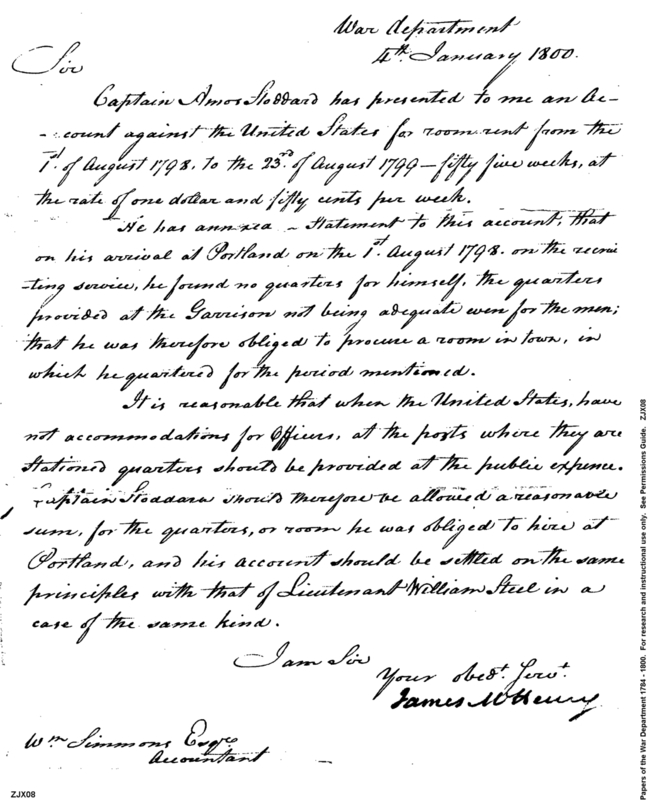 War department
4th January 1800.
Sir
Captain Amos Stoddard has presented to me an Ac-
-count against the United States for room rent from the
1st. of August 1798. to the 23rd. of August 1799 — fifty five weeks, at
the rate of one dollar and fifty cents per week.
He has annexed a Statement to this account, that
on his arrival at Portland on the 1st. August 1798. on the recrui
-ting service, he found no quarters for himself, the quarters
provided at the Garrison not being adequate even for the men;
that he was therefore obliged to procure a room in town, in
which he quartered for the period mentioned.
It is reasonable that when the United States, have
not accommodations for Officers, at the posts where they are
Stationed quarters should be provided at the public expence.
Captain Stoddard should therefore be allowed a reasonable
sum, for the quarters, or room he was obliged to hire at
Portland, and his account should be settled on the same
principles with that of Lieutenant William Steel in a
case of the same kind.
I am Sir
Your obedt. Servt.
James McHenry
Wm Simmons Esqre
Accountant
ZJX08
Papers of the War Department 1784 - 1800. For research and instructional use only. See Permissions Guide. ZJX08